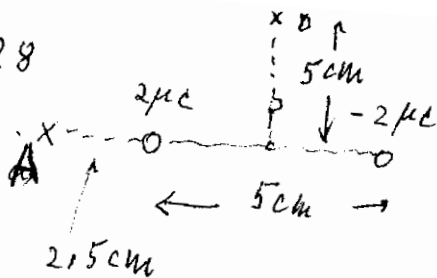 28
x D
5cm
2μc
-2μc
A x
5cm
2,5cm